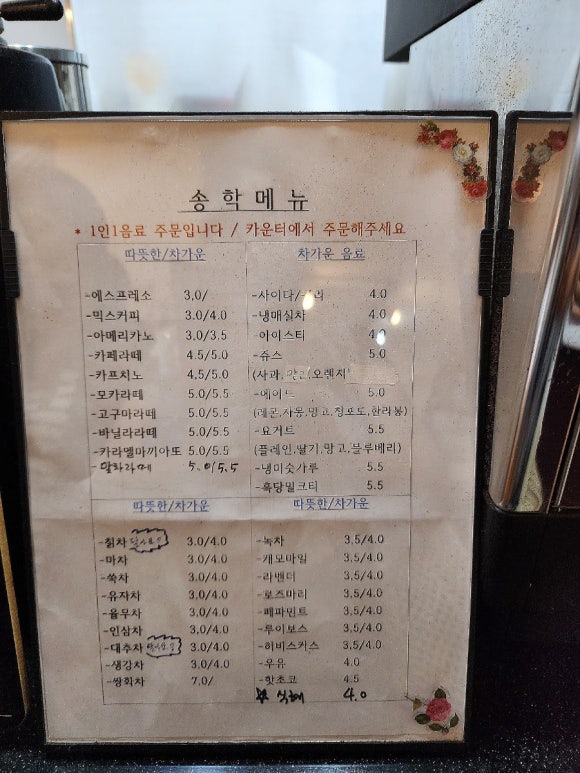 송학메뉴
* 1인1음료 주문입니다 / 카운터에서 주문해주세요
따뜻한/차가운
-에스프레소 3.0/
-믹스커피 3.0/4.0
-아메리카노 3.0/3.5
-카페라떼 4.5/5.0
-카프치노 4.5/5.0
-모카라떼 5.0/5.5
-고구마라떼 5.0/5.5
-바닐라라떼 5.0/5.5
-카라멜마끼아또 5.0/5.5
- 5.0/5.5
차가운 음료
-사이다/ 4.0
-냉매실차 4.0
-아이스티 4.0
-쥬스 5.0
(사과, 오렌지
-에이드 5.0
(레몬,자몽,망고,청포도,한라봉)
-요거트 5.5
(플레인,딸기,망고,블루베리)
-냉미숫가루 5.5
-흑당밀크티 5.5
따뜻한/차가운
-칡차 3.0/4.0
-마차 3.0/4.0
-쑥차 3.0/4.0
-유자차 3.0/4.0
-율무차 3.0/4.0
-인삼차 3.0/4.0
-대추차 3.0/4.0
-생강차 3.0/4.0
-쌍화차 7.0/
따뜻한/차가운
-녹차 3.5/4.0
-캐모마일 3.5/4.0
-라벤더 3.5/4.0
-로즈마리 3.5/4.0
-페파민트 3.5/4.0
-루이보스 3.5/4.0
-히비스커스 3.5/4.0
-우유 4.0
-핫초코 4.5
식혜 4.0